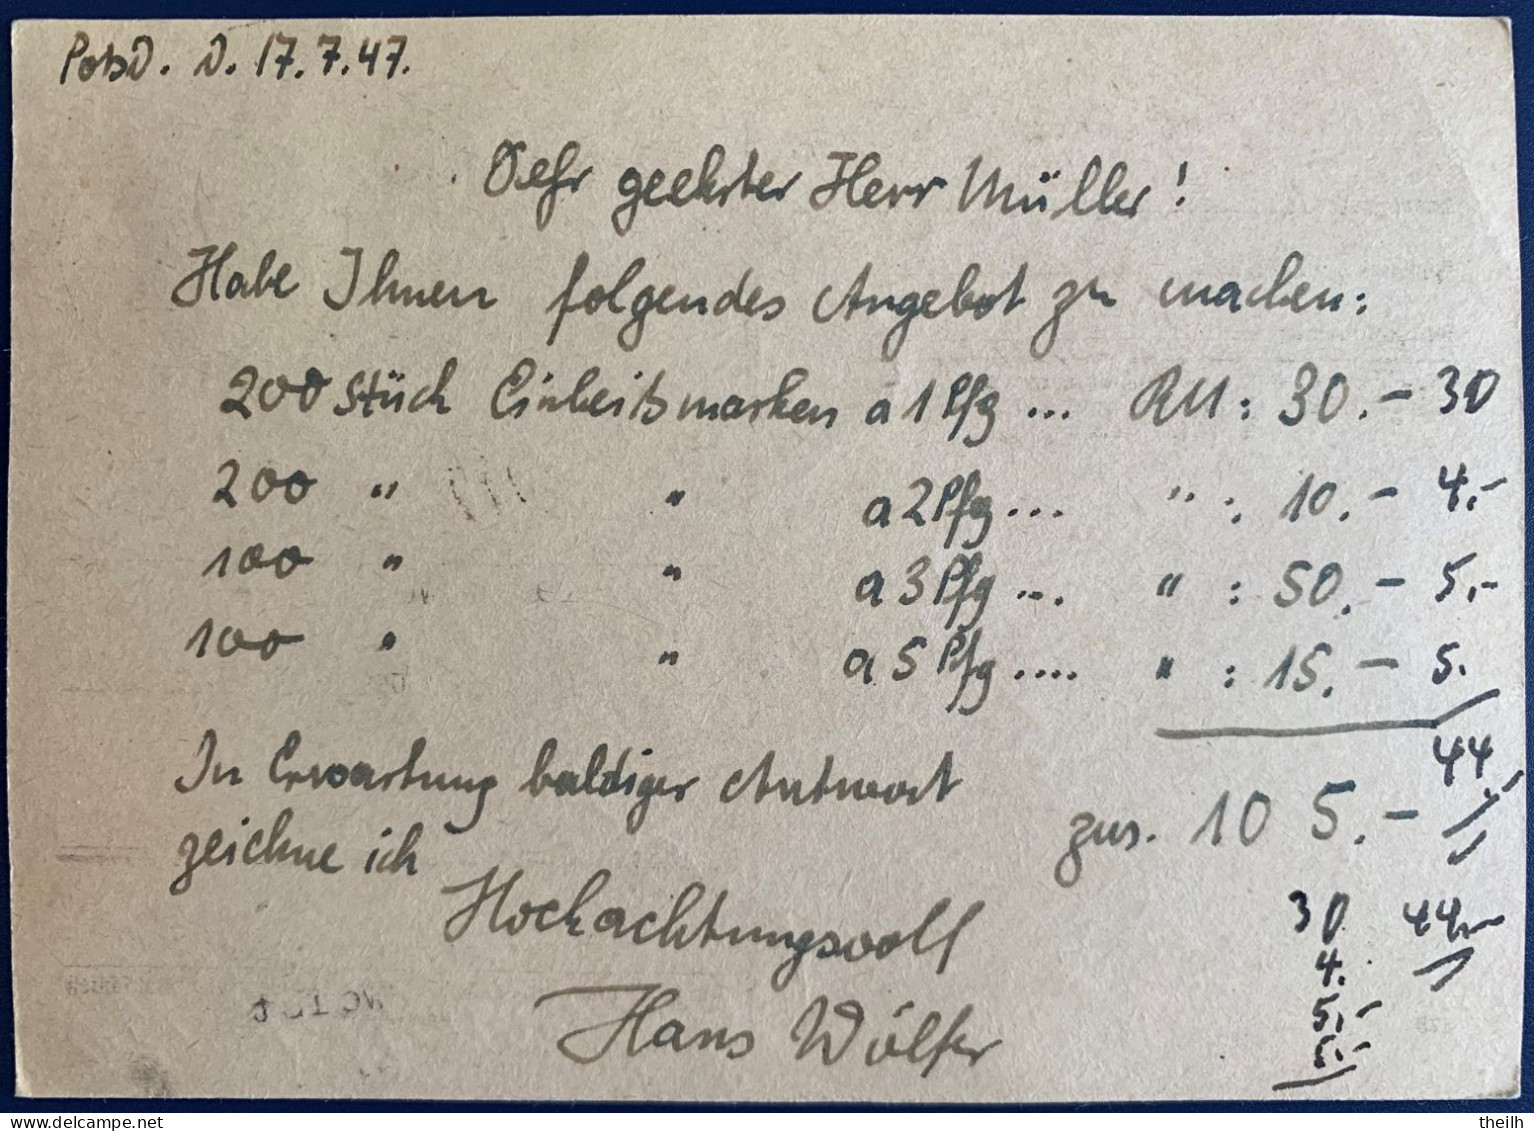 PotsD. D. 17.7.47.
Sehr geehrter Herr Müller!
Habe Ihnen folgendes Angebot zu machen:
200 Stück Einheitsmarken a 1 Pfg ... RM: 30.- 30
200 " " a 2 Pfg ... " : 10.- 4.-
100 " " a 3 Pfg ... " : 50.- 5.-
100 " " a 5 Pfg .... " : 15.- 5.
44,
In Erwartung baldiger Antwort
zus. 105.-
zeichne ich
Hochachtungsvoll
30 44,-
4.
5.-
5.-
Hans Wölfer
theilh